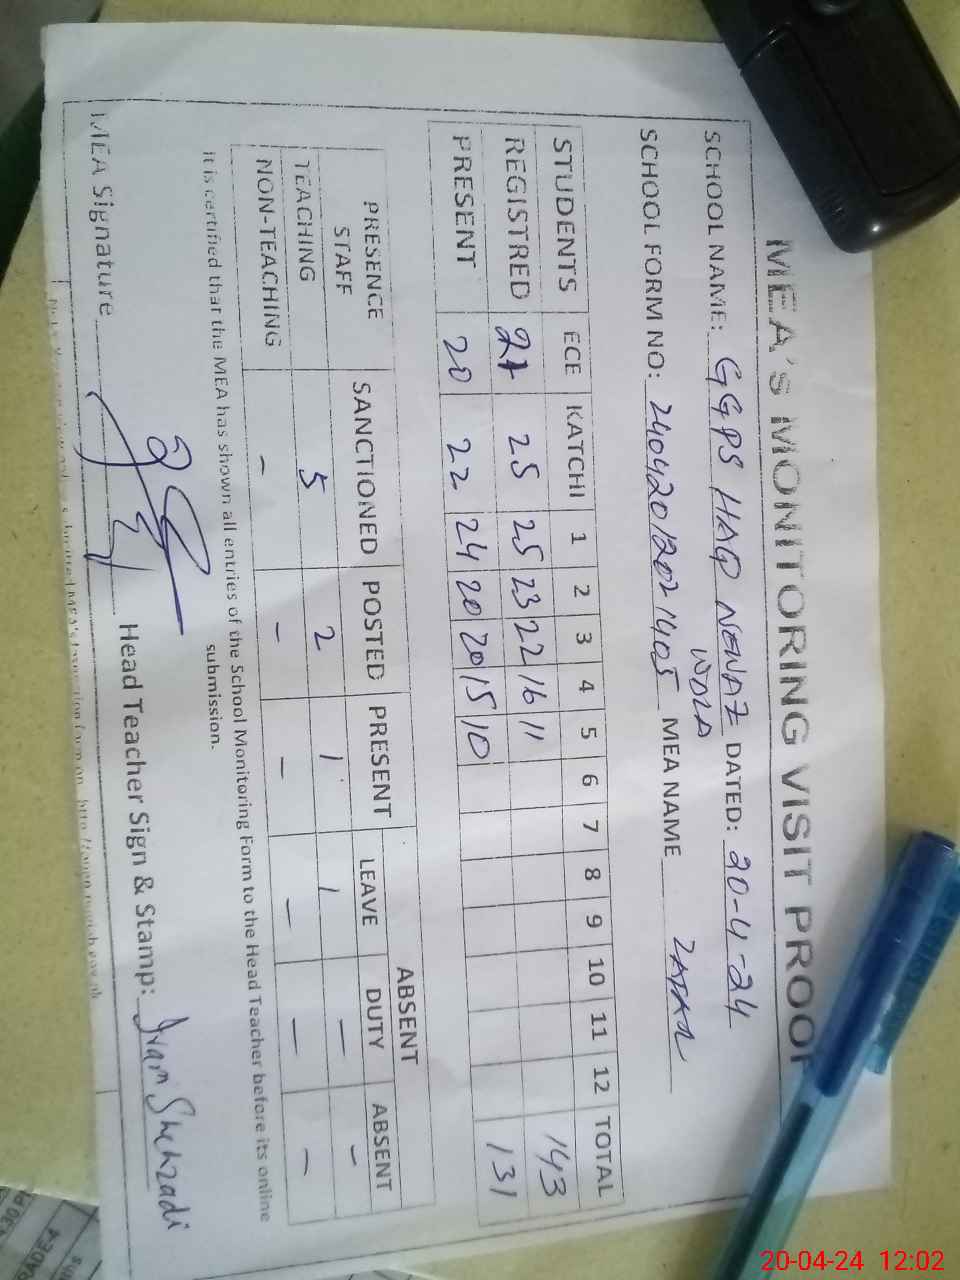 MEA's MONITORING VISIT PROOF
SCHOOL NAME: GGPS HAQ NEWAZ WALA DATED: 20-4-24
SCHOOL FORM NO: 24042012021405 MEA NAME ZAFAR
STUDENTS ECE KATCHI 1 2 3 4 5 6 7 8 9 10 11 12 TOTAL
REGISTRED 21 25 25 23 22 16 11 143
PRESENT 20 22 24 20 20 15 10 131
ABSENT
PRESENCE STAFF SANCTIONED POSTED PRESENT LEAVE DUTY ABSENT
TEACHING 5 2 1 1 - -
NON-TEACHING - - - - - -
It is certified that the MEA has shown all entries of the School Monitoring Form to the Head Teacher before its online
submission.
MEA Signature Head Teacher Sign & Stamp: Iram Shehzadi
RADE-4
20-04-24 12:02